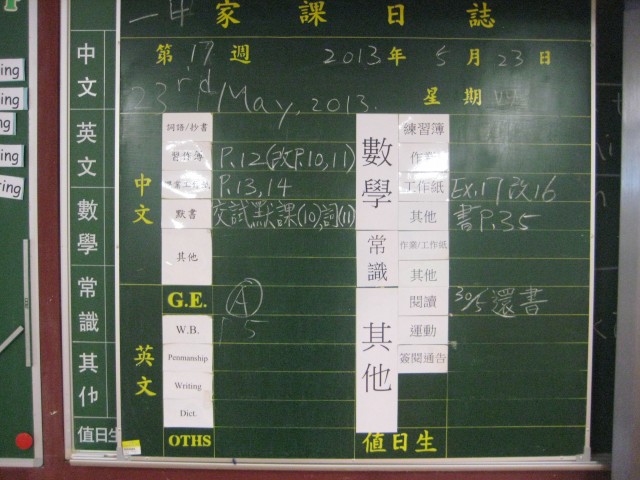 一甲 家課日誌
第 17 週 2013 年 5 月 23 日
23rd May, 2013. 星期四
中文
英文
數學
常識
其他
值日生
ing
ing
ng
ing
ring
中文
詞語/抄書
習作簿 P.12(改P.10,11)
P.13,14
默書 交試默課(10),詞(11)
其他
英文
G.E. A
W.B. P 5
Penmanship
Writing
Dict.
OTHS
數學
練習簿
作業
工作紙 Ex.17改16
其他 書P.35
常識
作業/工作紙
其他
其他
閱讀 30/5還書
運動
簽閱通告
值日生